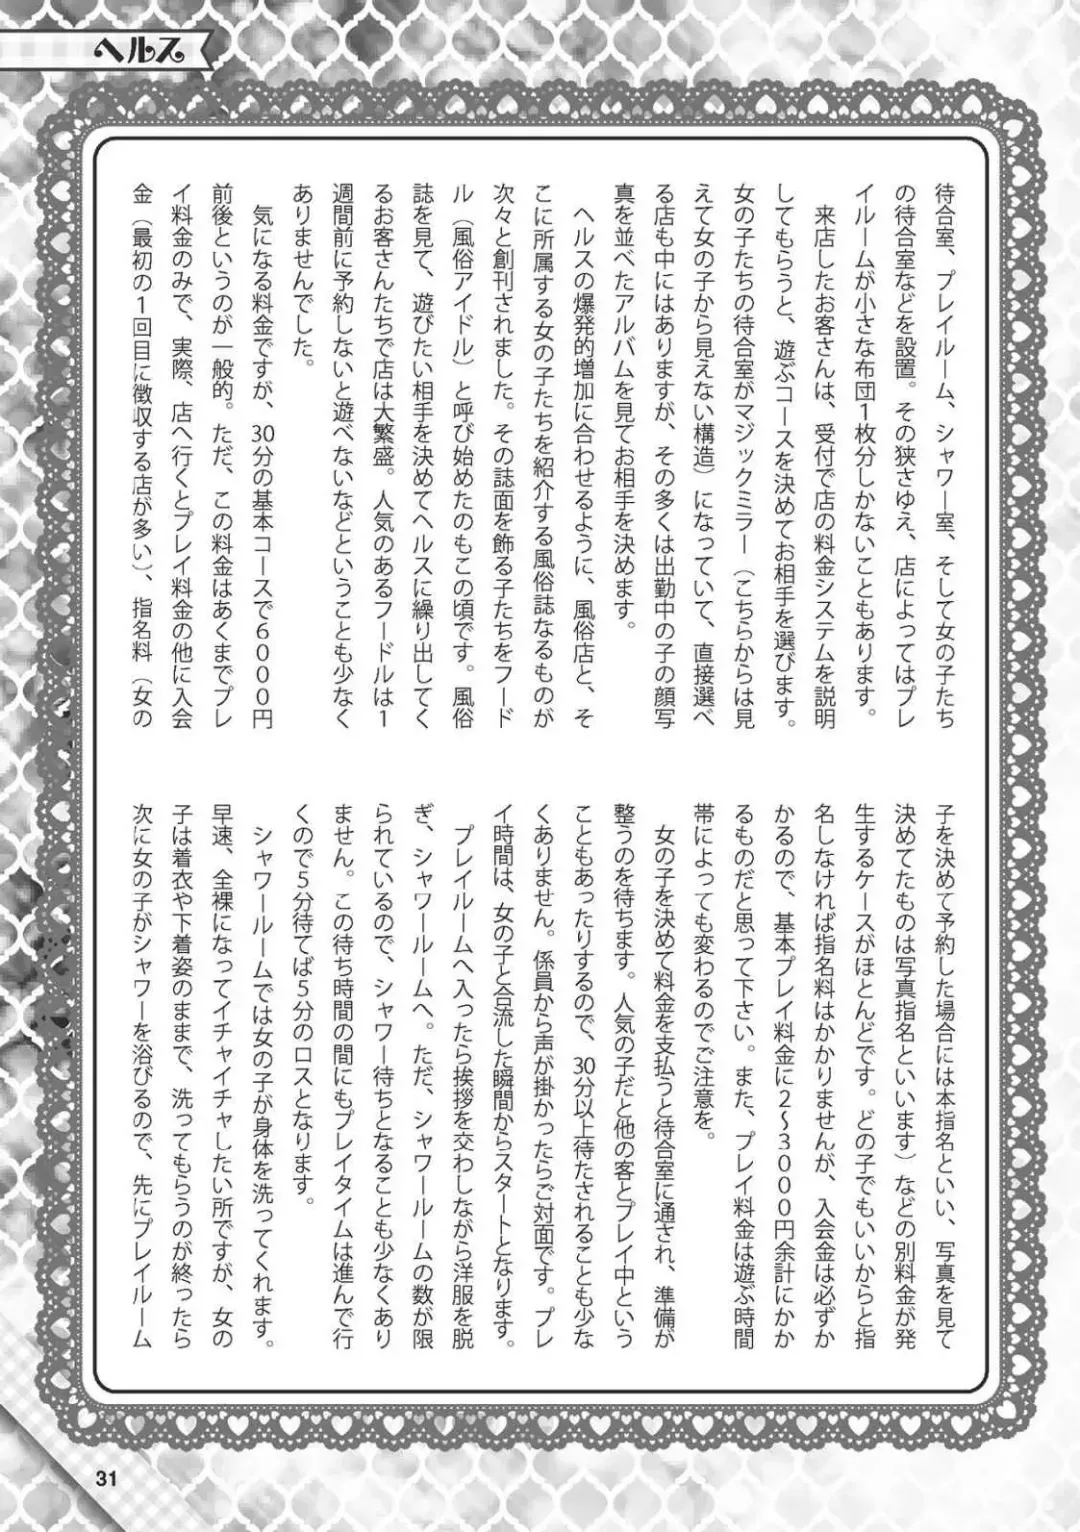 ヘルス
待合室、プレイルーム、シャワー室、そして女の子たち
の待合室などを設置。その狭さゆえ、店によってはプレ
イルームが小さな布団１枚分しかないこともあります。
　来店したお客さんは、受付で店の料金システムを説明
してもらうと、遊ぶコースを決めてお相手を選びます。
女の子たちの待合室がマジックミラー（こちらからは見
えて女の子から見えない構造）になっていて、直接選べ
る店も中にはありますが、その多くは出勤中の子の顔写
真を並べたアルバムを見てお相手を決めます。
　ヘルスの爆発的増加に合わせるように、風俗店と、そ
こに所属する女の子たちを紹介する風俗誌なるものが
次々と創刊されました。その誌面を飾る子たちをフード
ル（風俗アイドル）と呼び始めたのもこの頃です。風俗
誌を見て、遊びたい相手を決めてヘルスに繰り出してく
るお客さんたちで店は大繁盛。人気のあるフードルは１
週間前に予約しないと遊べないなどということも少なく
ありませんでした。
　気になる料金ですが、30分の基本コースで６０００円
前後というのが一般的。ただ、この料金はあくまでプレ
イ料金のみで、実際、店へ行くとプレイ料金の他に入会
金（最初の１回目に徴収する店が多い）、指名料（女の
子を決めて予約した場合には本指名といい、写真を見て
決めてたものは写真指名といいます）などの別料金が発
生するケースがほとんどです。どの子でもいいからと指
名しなければ指名料はかかりませんが、入会金は必ずか
かるので、基本プレイ料金に２～３０００円余計にかか
るものだと思って下さい。また、プレイ料金は遊ぶ時間
帯によっても変わるのでご注意を。
　女の子を決めて料金を支払うと待合室に通され、準備が
整うのを待ちます。人気の子だと他の客とプレイ中という
こともあったりするので、30分以上待たされることも少な
くありません。係員から声が掛かったらご対面です。プレ
イ時間は、女の子と合流した瞬間からスタートとなります。
　プレイルームへ入ったら挨拶を交わしながら洋服を脱
ぎ、シャワールームへ。ただ、シャワールームの数が限
られているので、シャワー待ちとなることも少なくあり
ません。この待ち時間の間にもプレイタイムは進んで行
くので５分待てば５分のロスとなります。
　シャワールームでは女の子が身体を洗ってくれます。
早速、全裸になってイチャイチャしたい所ですが、女の
子は着衣や下着姿のままで、洗ってもらうのが終ったら
次に女の子がシャワーを浴びるので、先にプレイルーム
31